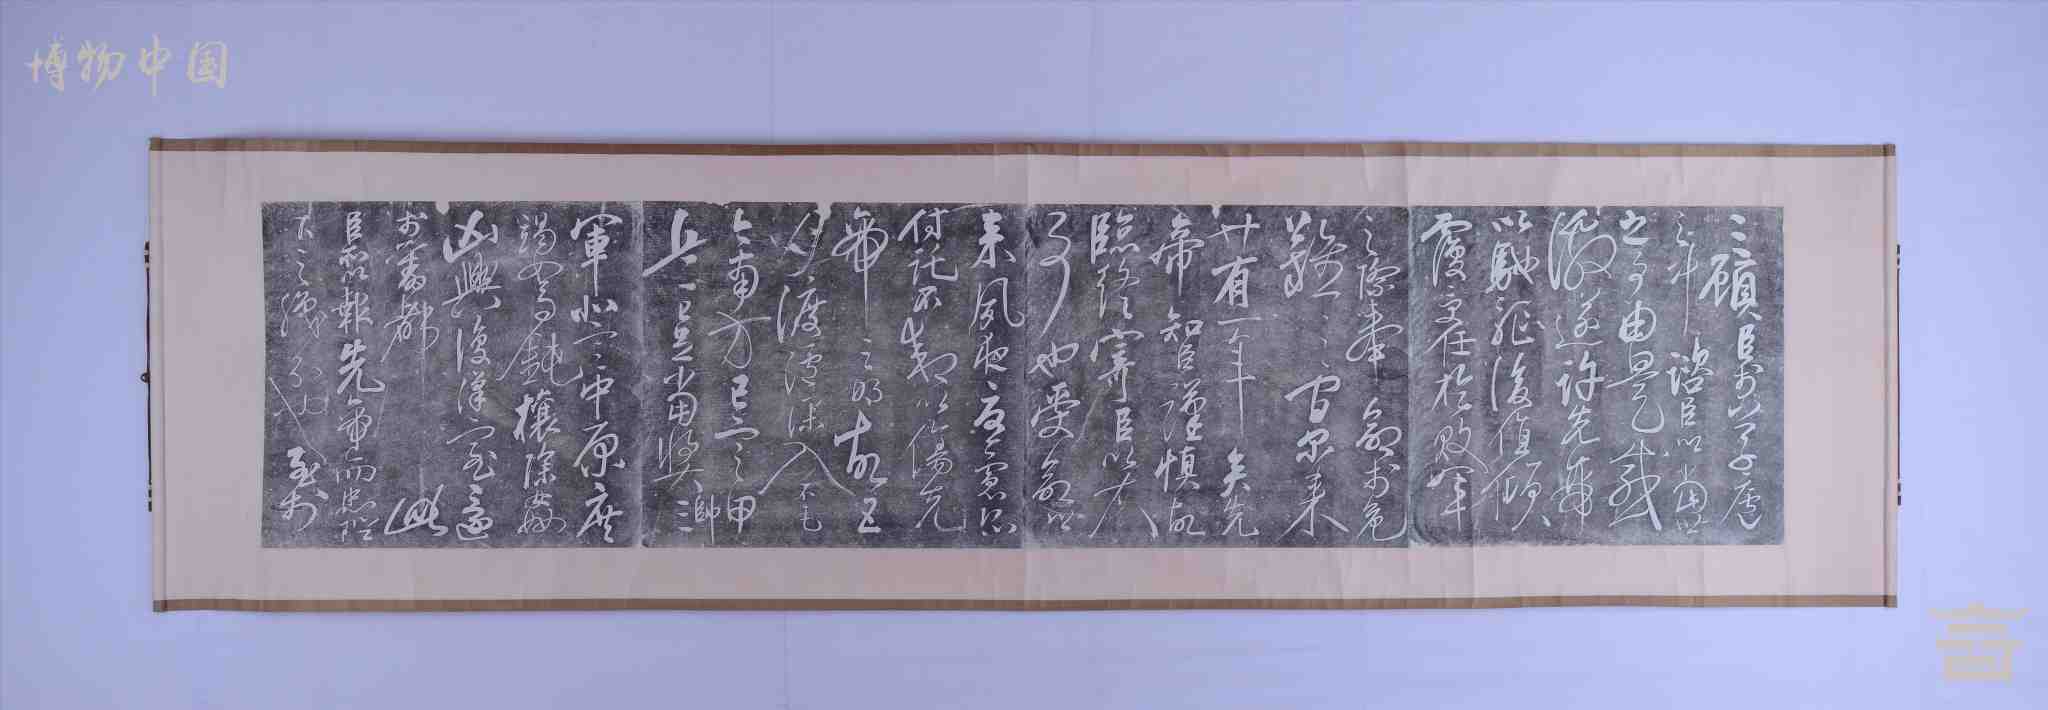 博物中国
三顧臣於草廬
之中諮臣以當世
之事由是感
激遂許先帝
以馳驅後值傾
覆受任於敗軍
之際奉命於危
難之間尔来
廿有一年矣先
帝知臣謹慎故
臨終寄臣以大
事也受命以
来夙夜憂慮恐
付託不效以傷先
帝之明故五
月渡瀘深入不毛
今南方已定甲
兵已足當獎帥三
軍北定中原庶
竭駑鈍攘除姦
凶興復漢室還
於舊都此
臣所以報先帝而忠陛
下之職分也至於